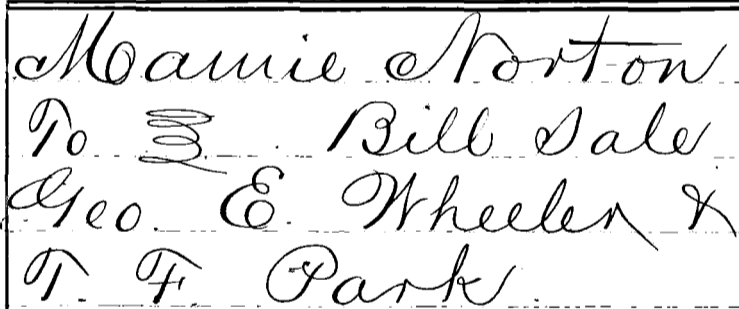 Mamie Norton
To Bill Sale
Geo. E. Wheeler &
T. F. Park